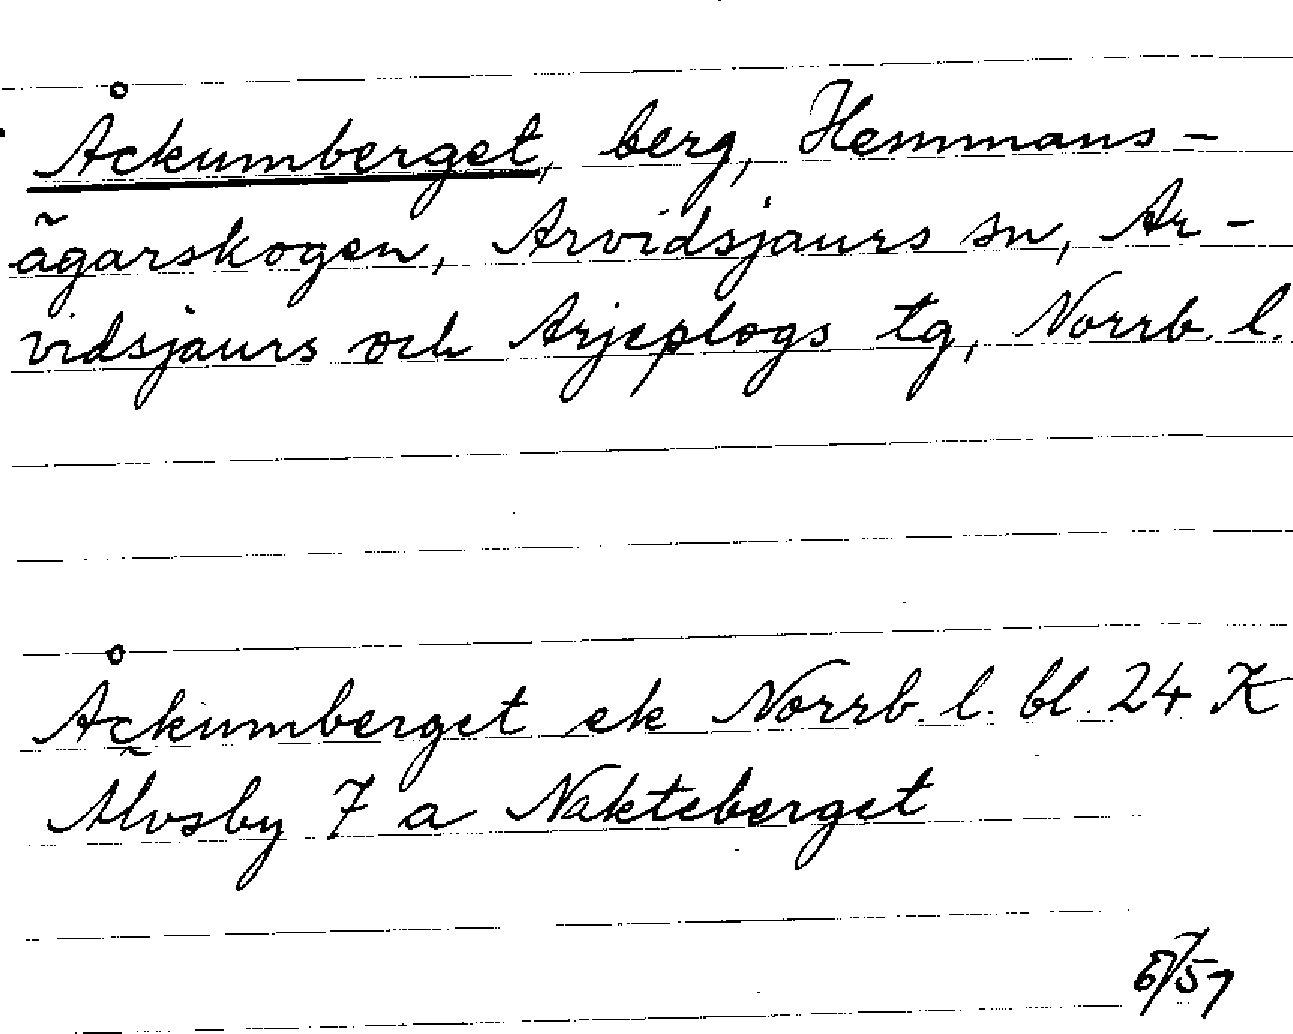 Åckumberget, berg, Hemmans-
ägarskogen, Arvidsjaurs sn, Ar-
vidsjaurs och Arjeplogs tg, Norrb. l.
Åckumberget ek Norrb. l. bl. 24 K
Älvsby 7 a Nakteberget